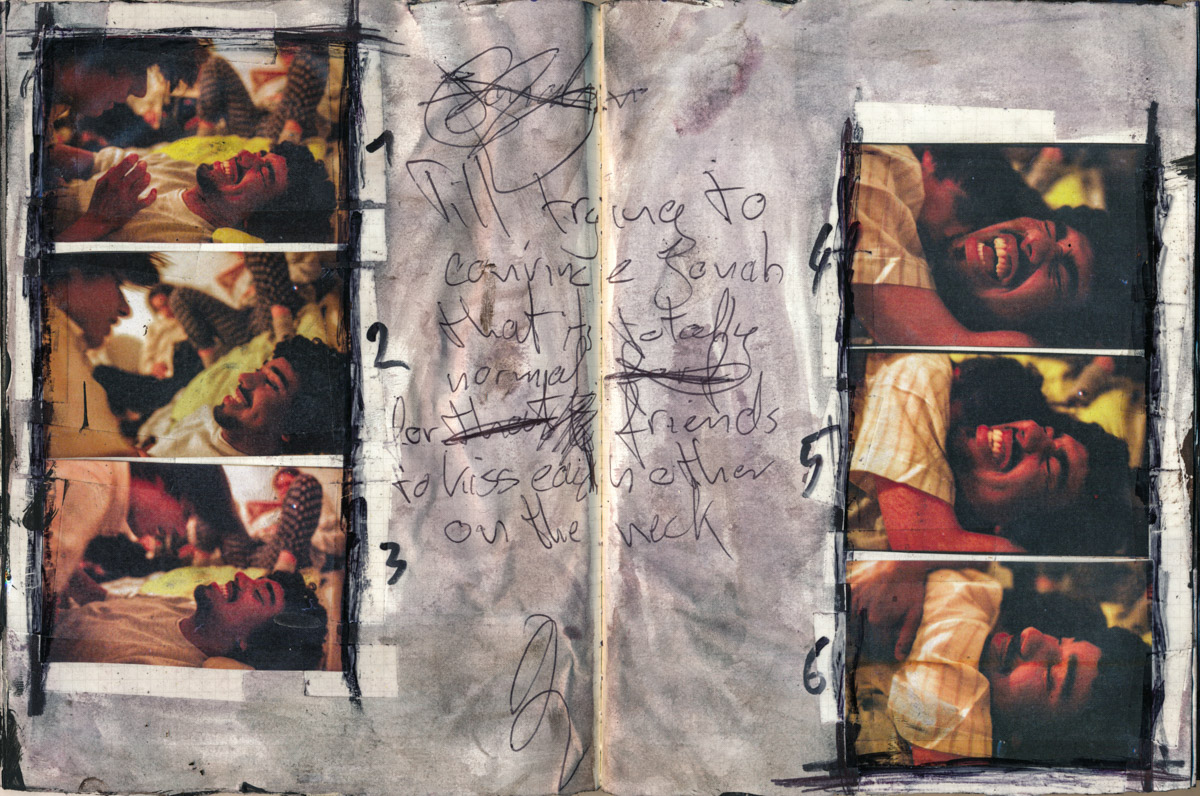 1
2
3
trying to
convince Jonah
that its totally
normal
for friends
to kiss each other
on the neck
4
5
6